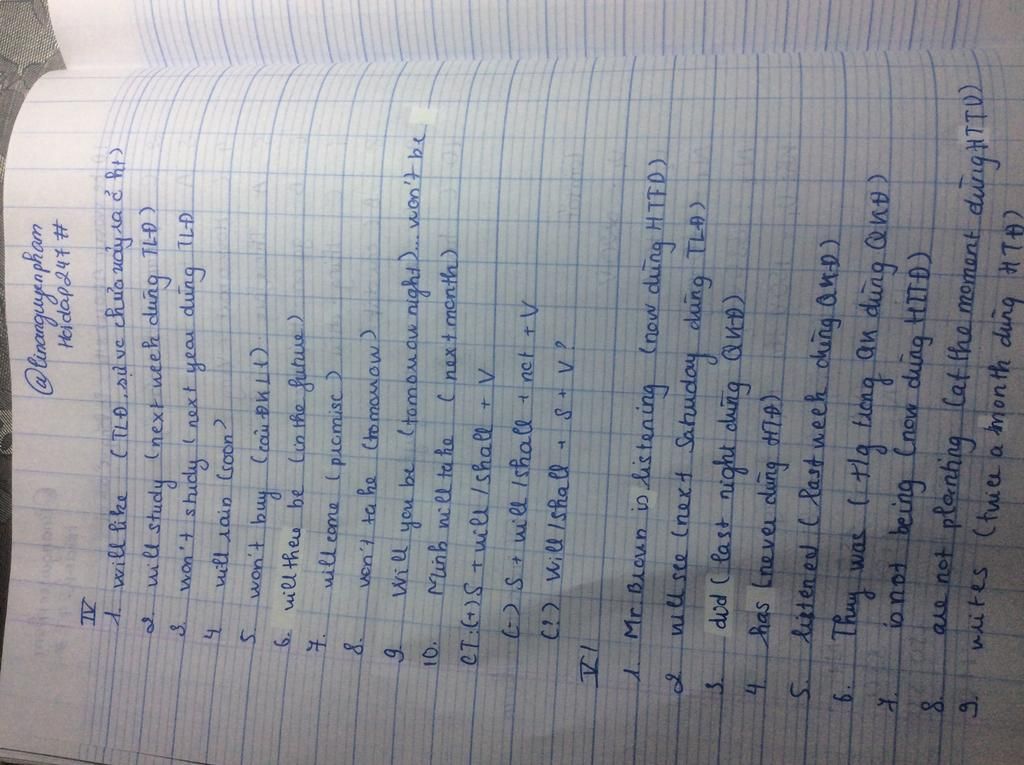 @linanguyenpham
Hoidap247#
IV
1. will like (TLĐ, sự vc chưa xảy ra ở ht)
2. will study (next week dùng TLĐ)
3. won't study (next year dùng TLĐ
4 will rain (soon)
5 won't buy (câu ĐKL1)
6. will there be (in the future)
7. will come (promise)
8. won't take (tomorrow)
9 Will you be (tomorrow night)... won't be
10. Minh will take (next month)
CT: (+) S + will / shall + V
(-) S + will / shall + not + V
(?) Will / shall + S + V?
VI
1 Mr Brown is listening (now dùng HTTD)
2 will see (next Saturday dùng TLĐ)
3. did (last night dùng QKĐ)
4 has (never dùng HTĐ)
5. listened (last week dùng QKĐ)
6. Thuy was (+1g trong QK dùng QKĐ)
7. is not being (now dùng HTTD)
8. are not planting (at the moment dùng HTTD)
9. writes (twice a month dùng HTĐ)